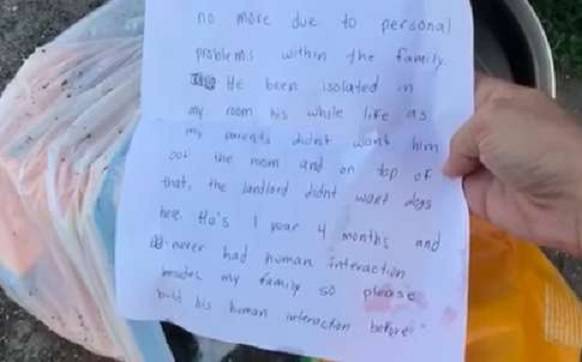 no more due to personal
problems within the family.
He been isolated in
my room his while life as
my parents didnt want him
out the room and on top of
that, the landlord didnt want dogs
here. He's 1 year 4 months and
never had human interaction
besides my family so please
build his human interaction before